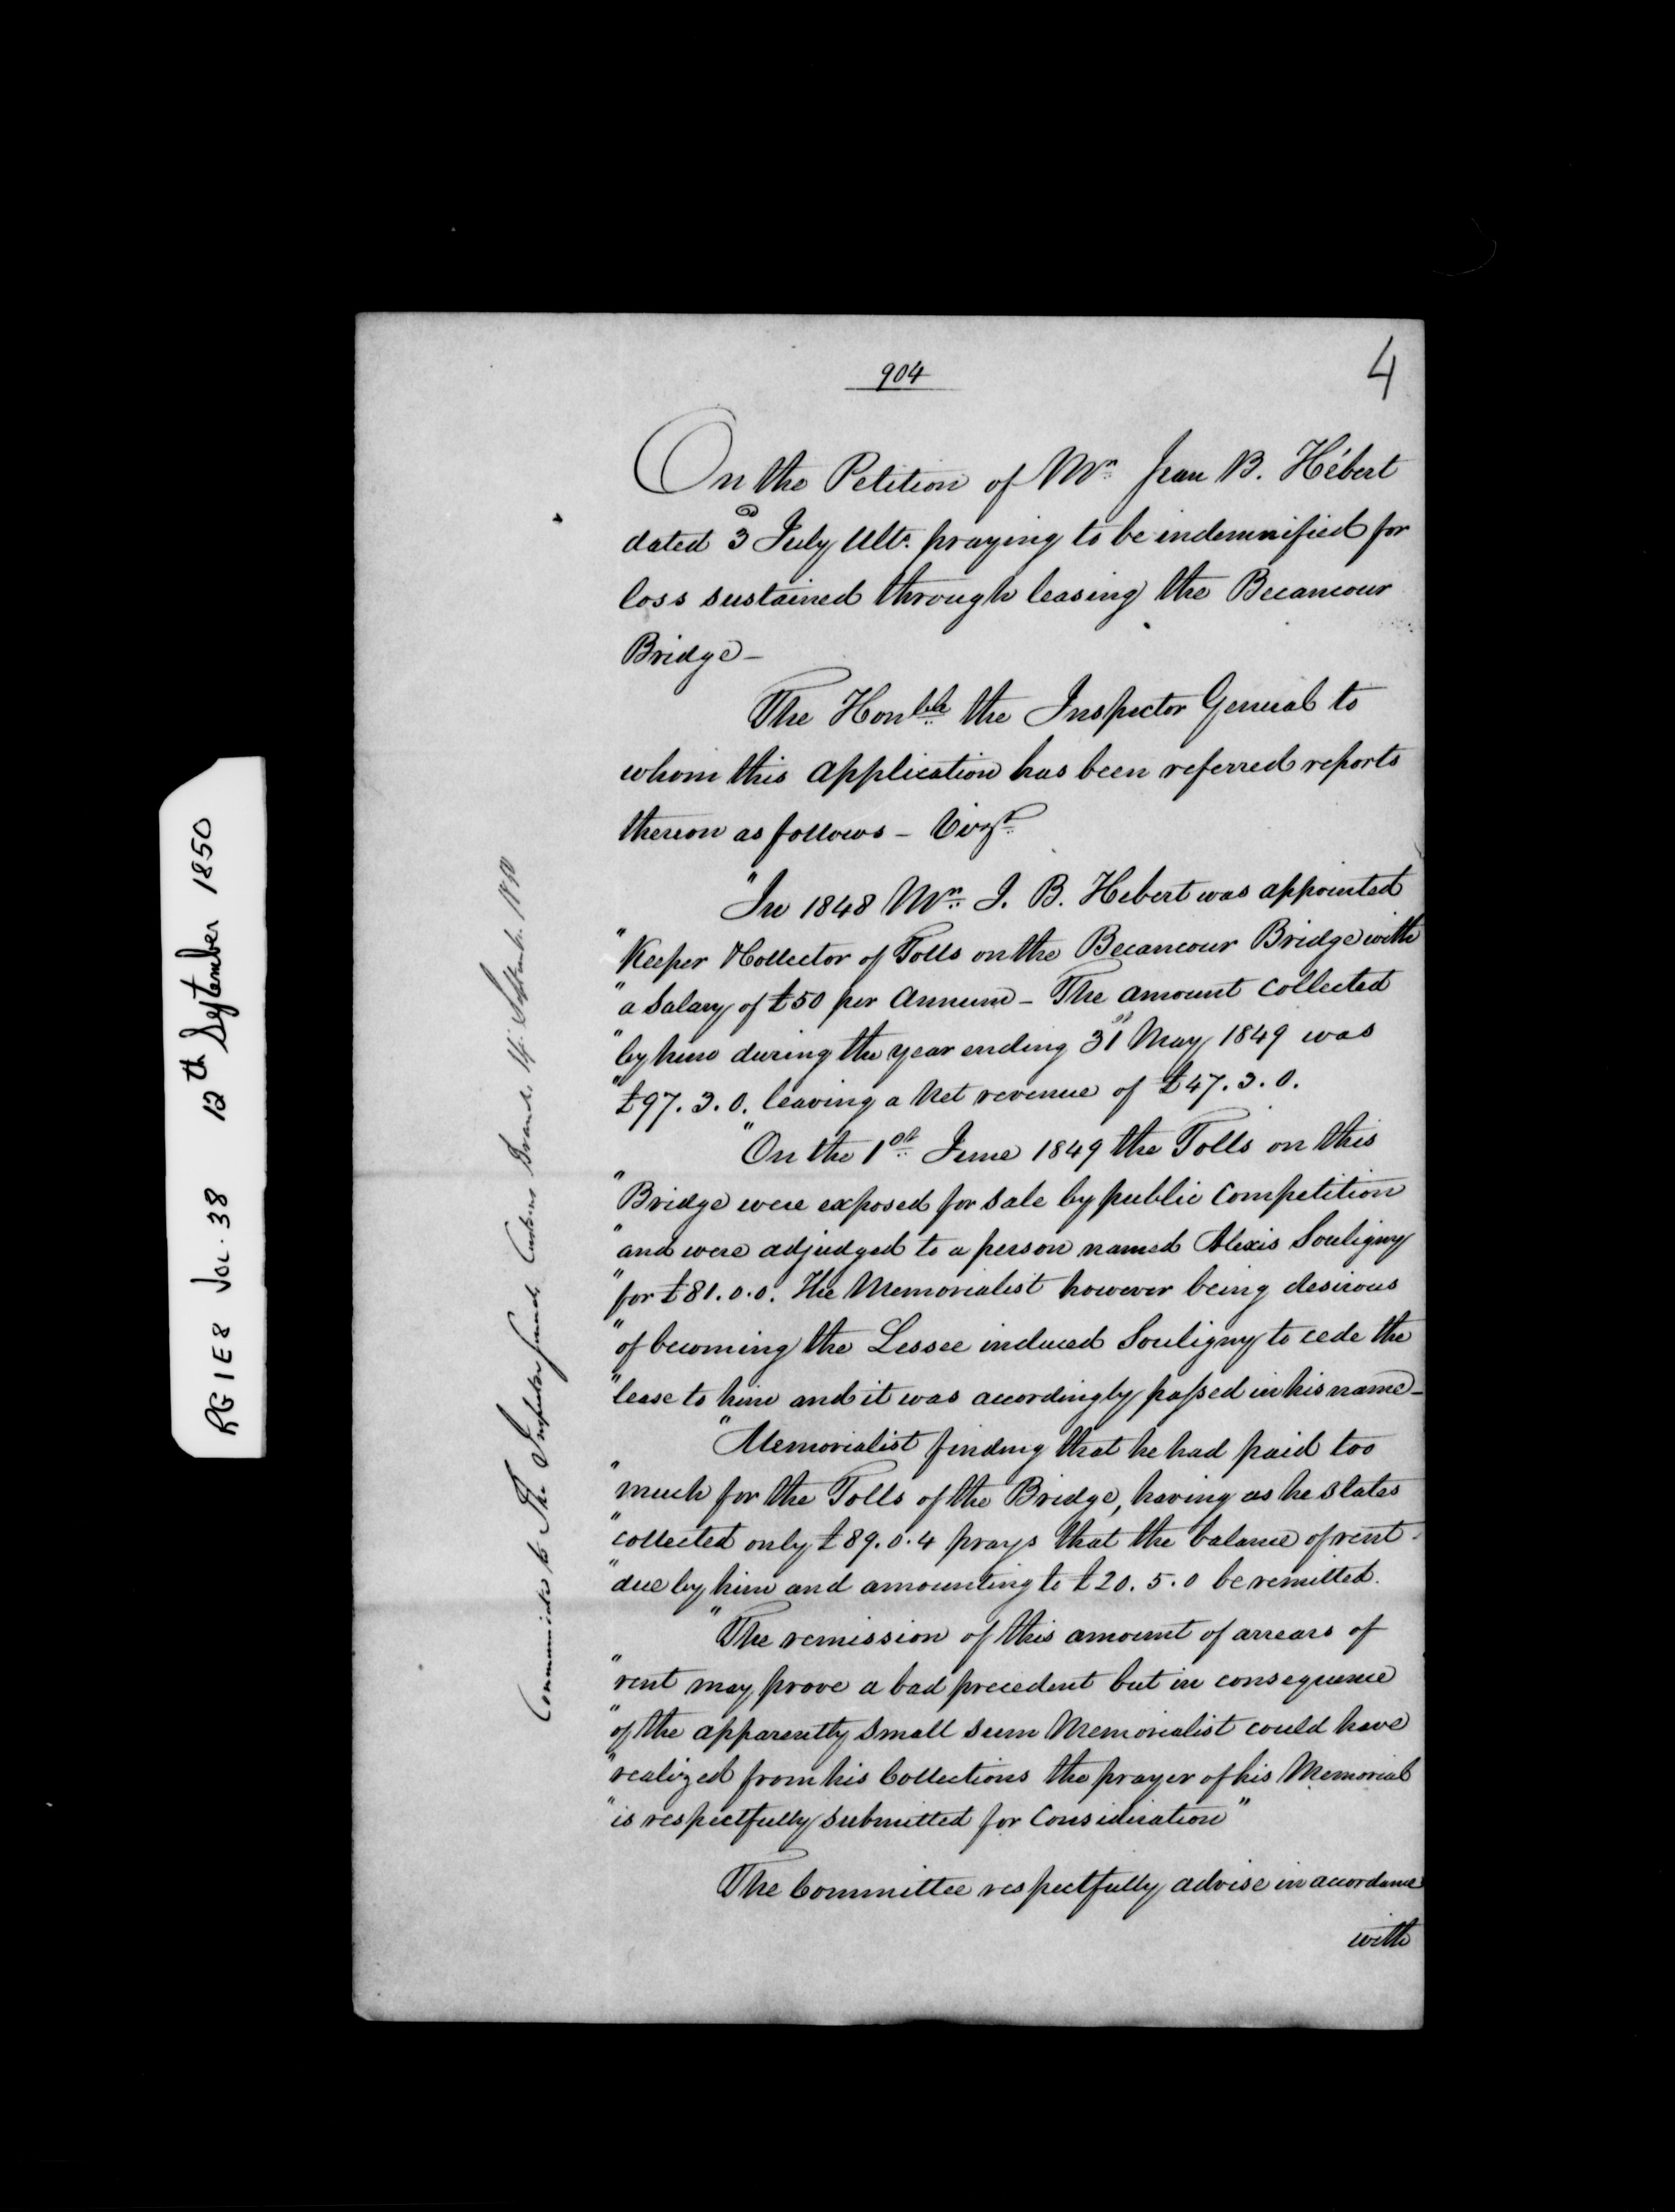 904
4
On the Petition of Mr. Jean B. Hébert
dated 3d July Ulto. praying to be indemnified for
loss sustained through leasing the Becancour
Bridge –
The Honble. the Inspector General to
whom this application has been referred reports
thereon as follows – Vizt.
"In 1848 Mr. J. B. Hebert was appointed
"Keeper & Collector of Tolls on the Becancour Bridge with
"a salary of £50 per Annum – The amount collected
"by him during the year ending 31st May 1849 was
"£97. 3. 0. leaving a net revenue of £47. 3. 0.
"On the 1st. June 1849 the Tolls on this
"Bridge were exposed for sale by public competition
"and were adjudged to a person named Alexis Souligny
"for £81. 0. 0. The Memorialist however being desirous
"of becoming the Lessee induced Souligny to cede the
"lease to him and it was accordingly passed in his name –
"Memorialist finding that he had paid too
"much for the Tolls of the Bridge, having as he states
"collected only £89. 0. 4 prays that the balance of rent
"due by him and amounting to £20. 5. 0 be remitted.
"The remission of this amount of arrears of
"rent may prove a bad precedent but in consequence
"of the apparently small sum Memorialist could have
"realized from his Collections the prayer of his Memorial
"is respectfully submitted for Consideration"
The Committee respectfully advise in accordance
with
Communicated to The Inspector General Customs Branch 14. Septemb. 1850
RG 1 E 8 Vol. 38 12th September 1850